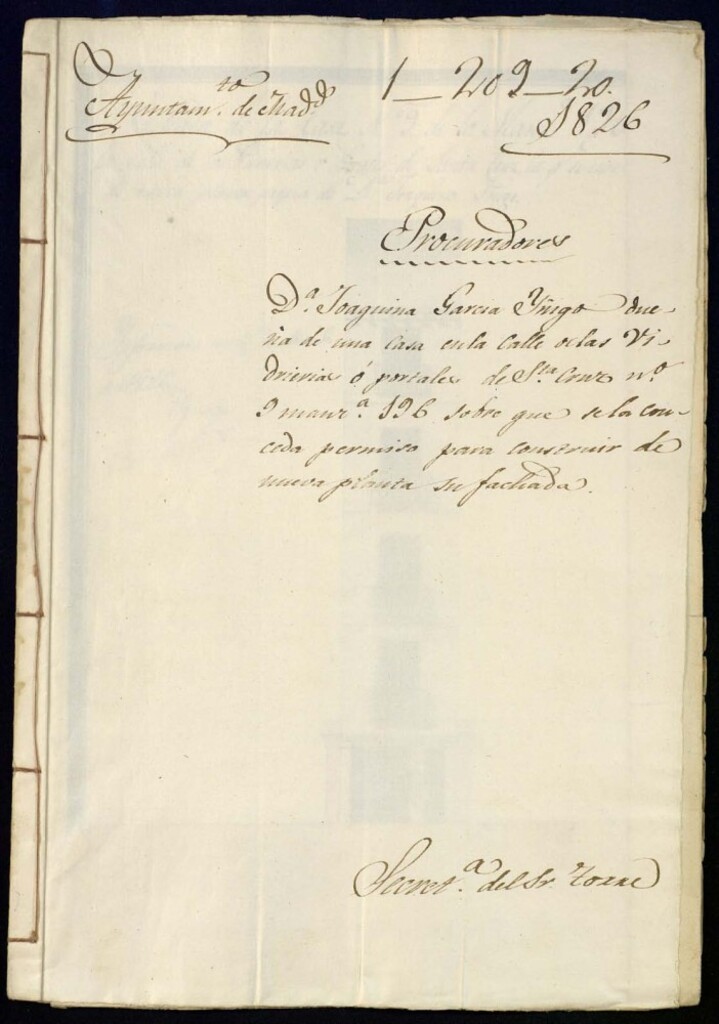 Ayuntam.to de Madd
1_209_20.
1826
Procuradores
D.a Joaquina Garcia Yñigo due-
ña de una casa en la calle de las Vi-
drierias ó portales de S.ta Cruz n.o
9 manz.a 196 sobre que se la con-
ceda permiso para construir de
nueva planta su fachada.
Secret.a del Sr. Torre